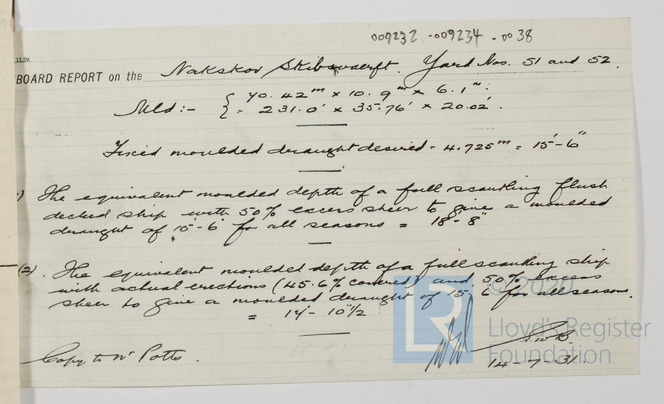 009232-009234-0038
11.29.
BOARD REPORT on the Nakskov Skibsvaerft. Yard Nos. 51 and 52.
Mld:- { 70.42ᵐ × 10.9ᵐ × 6.1ᵐ.
= 231.0' × 35.76' × 20.02'.
Fixed moulded draught desired - 4.725ᵐ = 15'-6"
1) The equivalent moulded depth of a full scantling flush
decked ship with 50% excess sheer to give a moulded
draught of 15'-6" for all seasons = 18'-8"
(2). The equivalent moulded depth of a full scantling ship
with actual erections (45.6% covered) and 50% excess
sheer to give a moulded draught of 15'-6" for all seasons.
= 14'-10½
© 2020
LR
Lloyd's Register
Foundation
Copy to Mr Potts.
14-7-31.